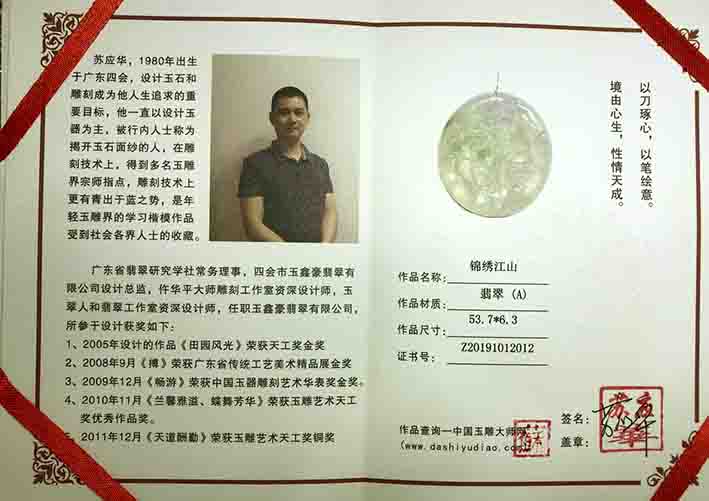 苏应华，1980年出生
于广东四会，设计玉石和
雕刻成为他人生追求的重
要目标，他一直以设计玉
器为主，被行内人士称为
揭开玉石面纱的人，在雕
刻技术上，得到多名玉雕
界宗师指点，雕刻技术上
更有青出于蓝之势，是年
轻玉雕界的学习楷模作品
受到社会各界人士的收藏。
广东省翡翠研究学社常务理事，四会市玉鑫豪翡翠有
限公司设计总监，仵华平大师雕刻工作室资深设计师，玉
翠人和翡翠工作室资深设计师，任职玉鑫豪翡翠有限公司，
所参于设计获奖如下：
1、2005年设计的作品《田园风光》荣获天工奖金奖
2、2008年9月《搏》荣获广东省传统工艺美术精品展金奖
3、2009年12月《畅游》荣获中国玉器雕刻艺术华表奖金奖。
4、2010年11月《兰馨雅溢、蝶舞芳华》荣获玉雕艺术天工
奖优秀作品奖。
、2011年12月《天道酬勤》荣获玉雕艺术天工奖铜奖
以刀琢心，以笔绘意。
境由心生，性情天成。
作品名称：锦绣江山
作品材质：翡翠（A）
作品尺寸：53.7*6.3
证书号：Z20191012012
作品查询—中国玉雕大师网
(www.dashiyudiao.com)
签名：
盖章：